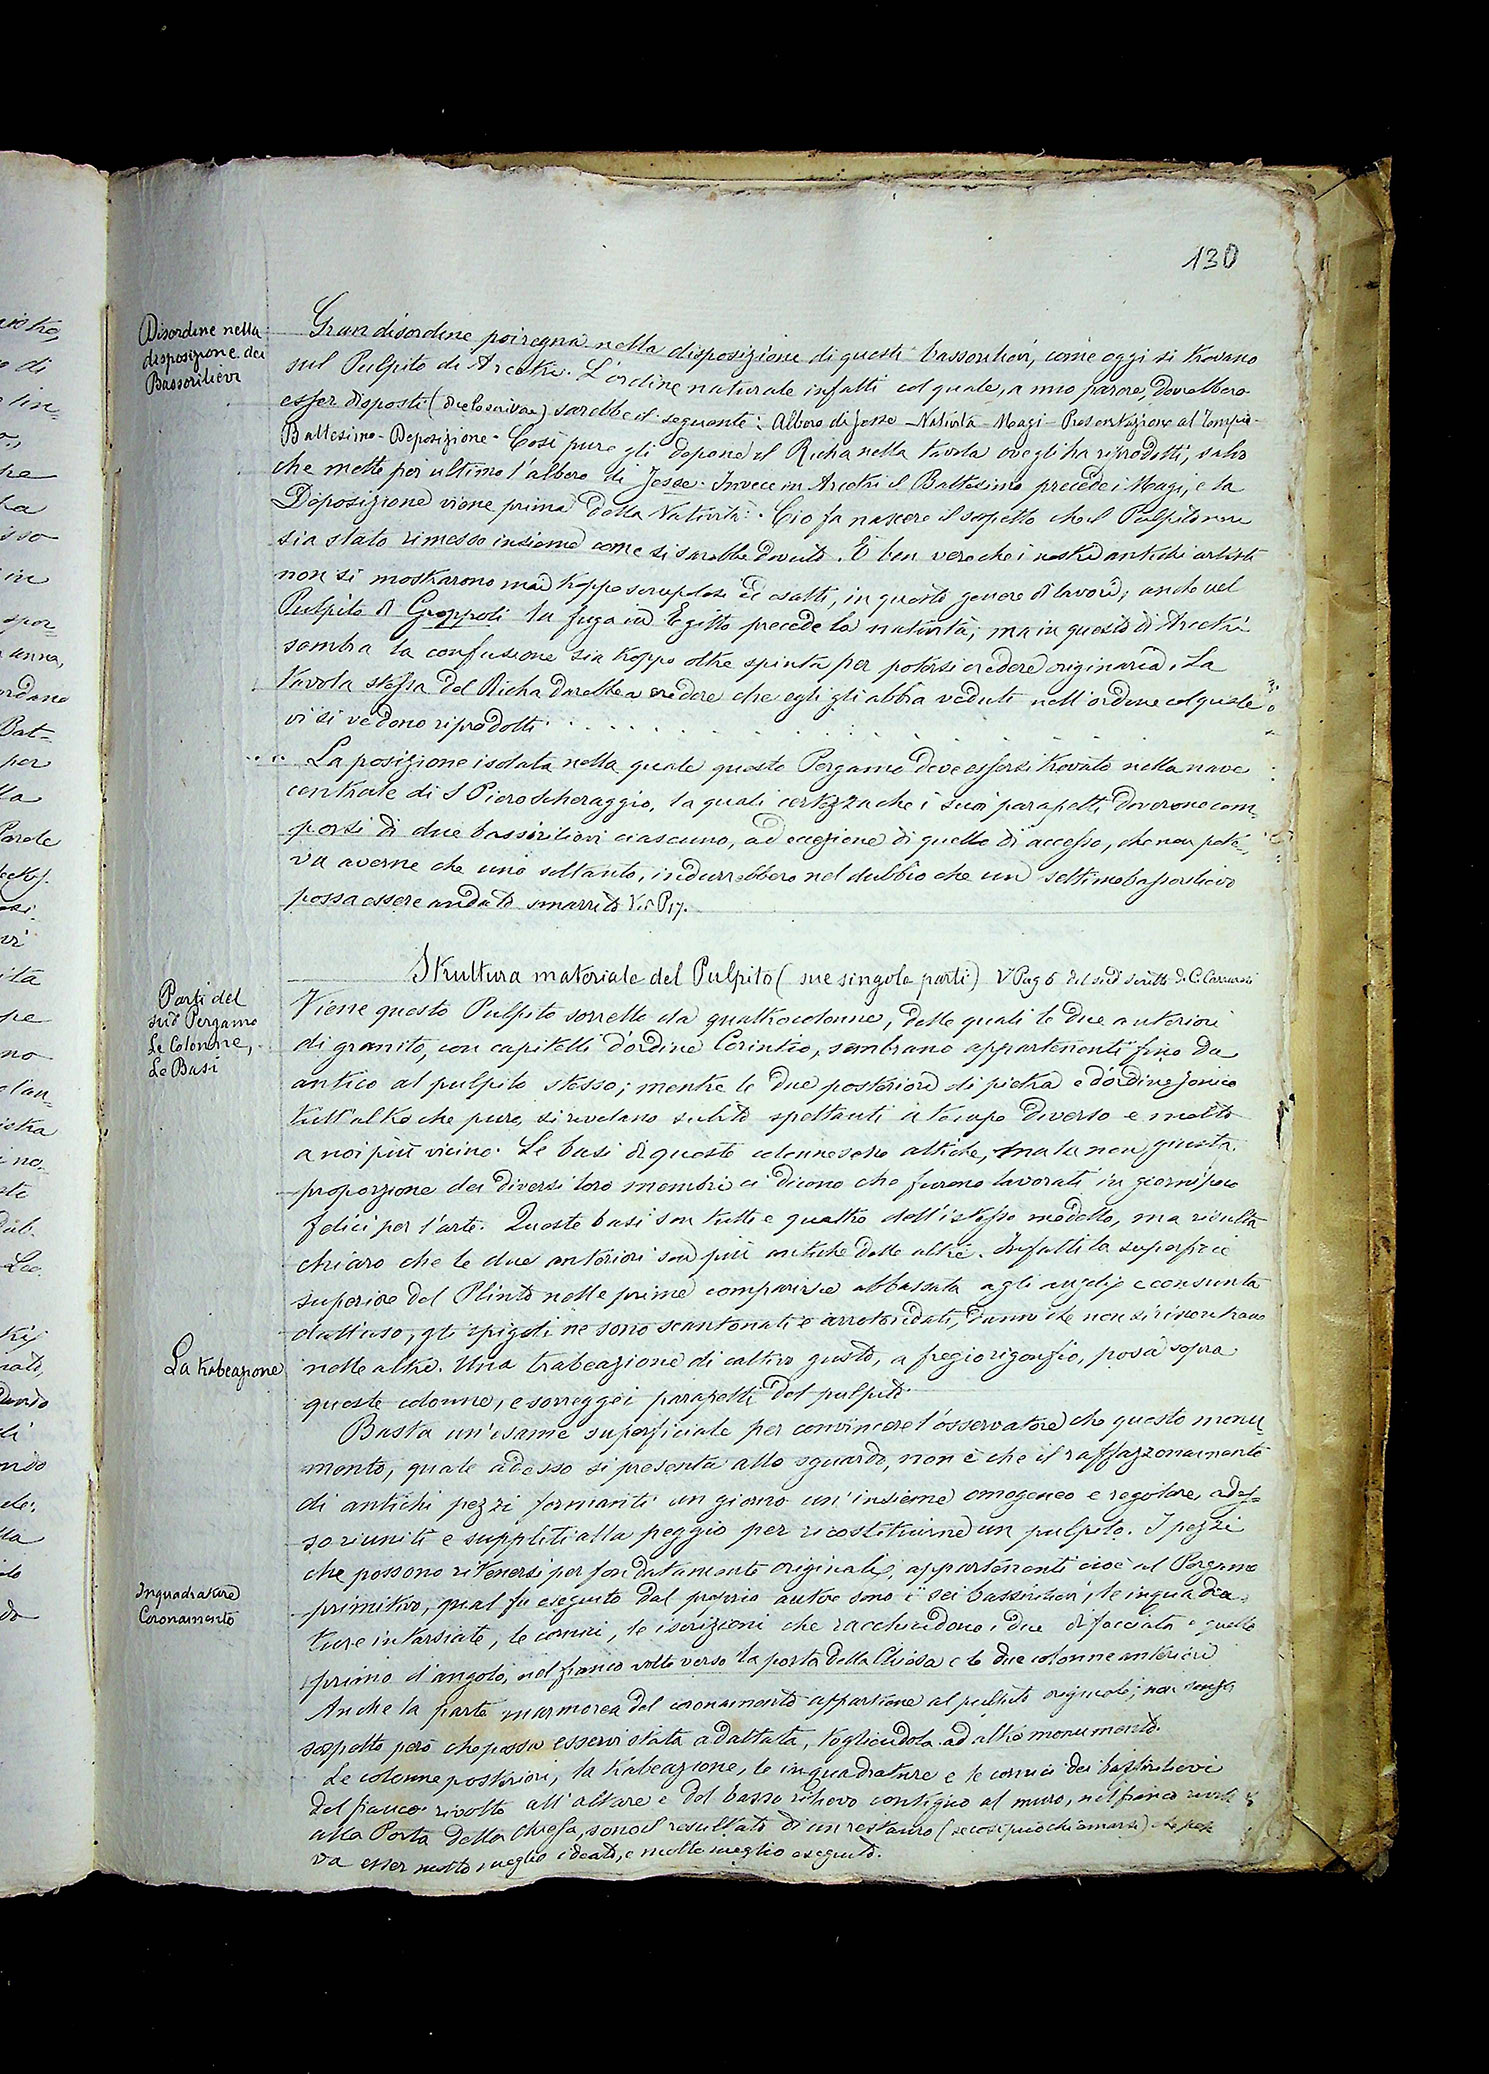 130
Disordine nella
disposizione dei
Bassorilievi
Gran disordine poi regna nella disposizione di questi bassorilievi, come oggi si trovano
sul Pulpito di Arcetri. L'ordine naturale infatti col quale, a mio parere, dovrebbero
esser disposti (dice lo scrivore) sarebbe il seguente: Albero di Jesse - Natività - Magi - Presentazione al Tempio -
Battesimo - Deposizione. Così pure gli depone il Richa nella tavola ove gli ha riprodotti, salvo
che mette per ultimo l'albero di Jesse. Invece in Arcetri il Battesimo precede i Magi, e la
Deposizione viene prima della Natività. Ciò fa nascere il sospetto che il Pulpito non
sia stato rimesso insieme come si sarebbe dovuto. È ben vero che i nostri antichi artisti
non si mostrarono mai troppo scrupolosi ed esatti, in questo genere di lavori; anche nel
Pulpito di Groppoli la fuga in Egitto precede la natività; ma in questo di Arcetri
sembra la confusione sia troppo oltre spinta per potersi credere originaria. La
tavola stessa del Richa darebbe a credere che egli gli abbia veduti nell'ordine col quale
vi si vedono riprodotti . . . . . . . . . . . . .
. . . . La posizione isolata nella quale questo Pergamo deve essersi trovato nella nave
centrale di S Piero Scheraggio, la quasi certezza che i suoi parapetti doverono com-
porsi di due bassirilievi ciascuno, ad eccezione di quello di accesso, che non pote-
va averne che uno soltanto, indurrebbero nel dubbio che un settimo bassorilievo
possa essere andato smarrito V. P 17.
Skultura materiale del Pulpito (sue singole parti) V Pag 6 del sud scritto di C. Carnesecchi
Parti del
sud Pergamo
Le Colonne,
Le Basi
Viene questo Pulpito sorretto da quattro colonne, delle quali le due anteriori
di granito, con capitelli d'ordine Corintio, sembrano appartenenti fino da
antico al pulpito stesso; mentre le due posteriori di pietra e d'ordine Jonico
tutt'altro che puro, si rivelano subito spettanti a tempo diverso e molto
a noi più vicino. Le basi di queste colonne sono attiche, ma la non giusta
proporzione dei diversi loro membri ci dicono che furono lavorati in giorni poco
felici per l'arte. Queste basi son tutte e quattro dell'istesso modello, ma risulta
chiaro che le due anteriori son più antiche delle altre. Infatti la superficie
superiore del Plinto nelle prime comparisce abbassata agli angoli e consunta
dall'uso, gli spigoli ne sono scantonati e arrotondati, danni che non si riscontrano
La trabeazione
nelle altre. Una trabeazione di cattivo gusto, a fregio rigonfio, posa sopra
queste colonne, e sorregge i parapetti del pulpito.
Basta un'esame superficiale per convincere l'osservatore che questo monu-
mento, quale adesso si presenta allo sguardo, non è che il raffazzonamento
di antichi pezzi formanti un giorno un'insieme omogeneo e regolare, ades-
so riuniti e suppliti alla peggio per ricostituirne un pulpito. I pezzi
che possono ritenersi per fondatamente originali, appartenenti cioè al Pergamo
Inquadrature
Coronamento
primitivo, qual fu eseguito dal proprio autore sono i sei bassirilievi, le inquadra-
ture intarsiate, le cornici, le iscrizioni che racchiudono i due di facciata e quello
primo d'angolo, nel fianco volto verso la porta della Chiesa e le due colonne anteriori
Anche la parte marmorea del coronamento appartiene al pulpito originale; non senza
sospetto però che possa esservi stata adattata, togliendola ad altro monumento.
Le colonne posteriori, la trabeazione, le inquadrature e le cornici dei bassirilievi
del fianco rivolto all'altare e del basso rilievo contiguo al muro, nel fianco rivolto
alla Porta della Chiesa, sono il resultato di un restauro (se così può chiamarsi) che pote
va esser molto meglio ideato, e molto meglio eseguito.